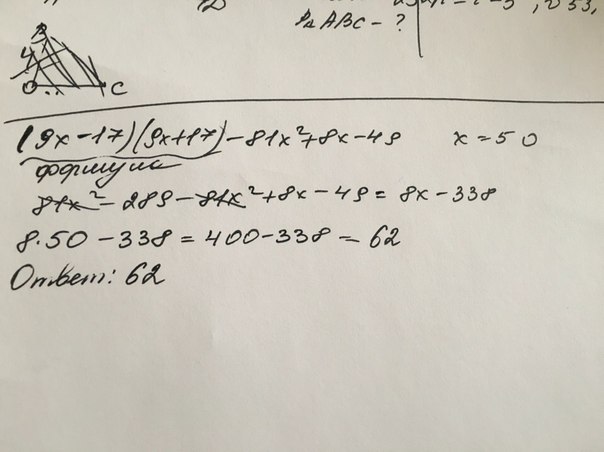 P△ ABC - ?
B
4
C
(9x-17)(9x+17)-81x²+8x-49 x=50
формула
81x²-289-81x²+8x-49=8x-338
8·50-338=400-338=62
Ответ: 62